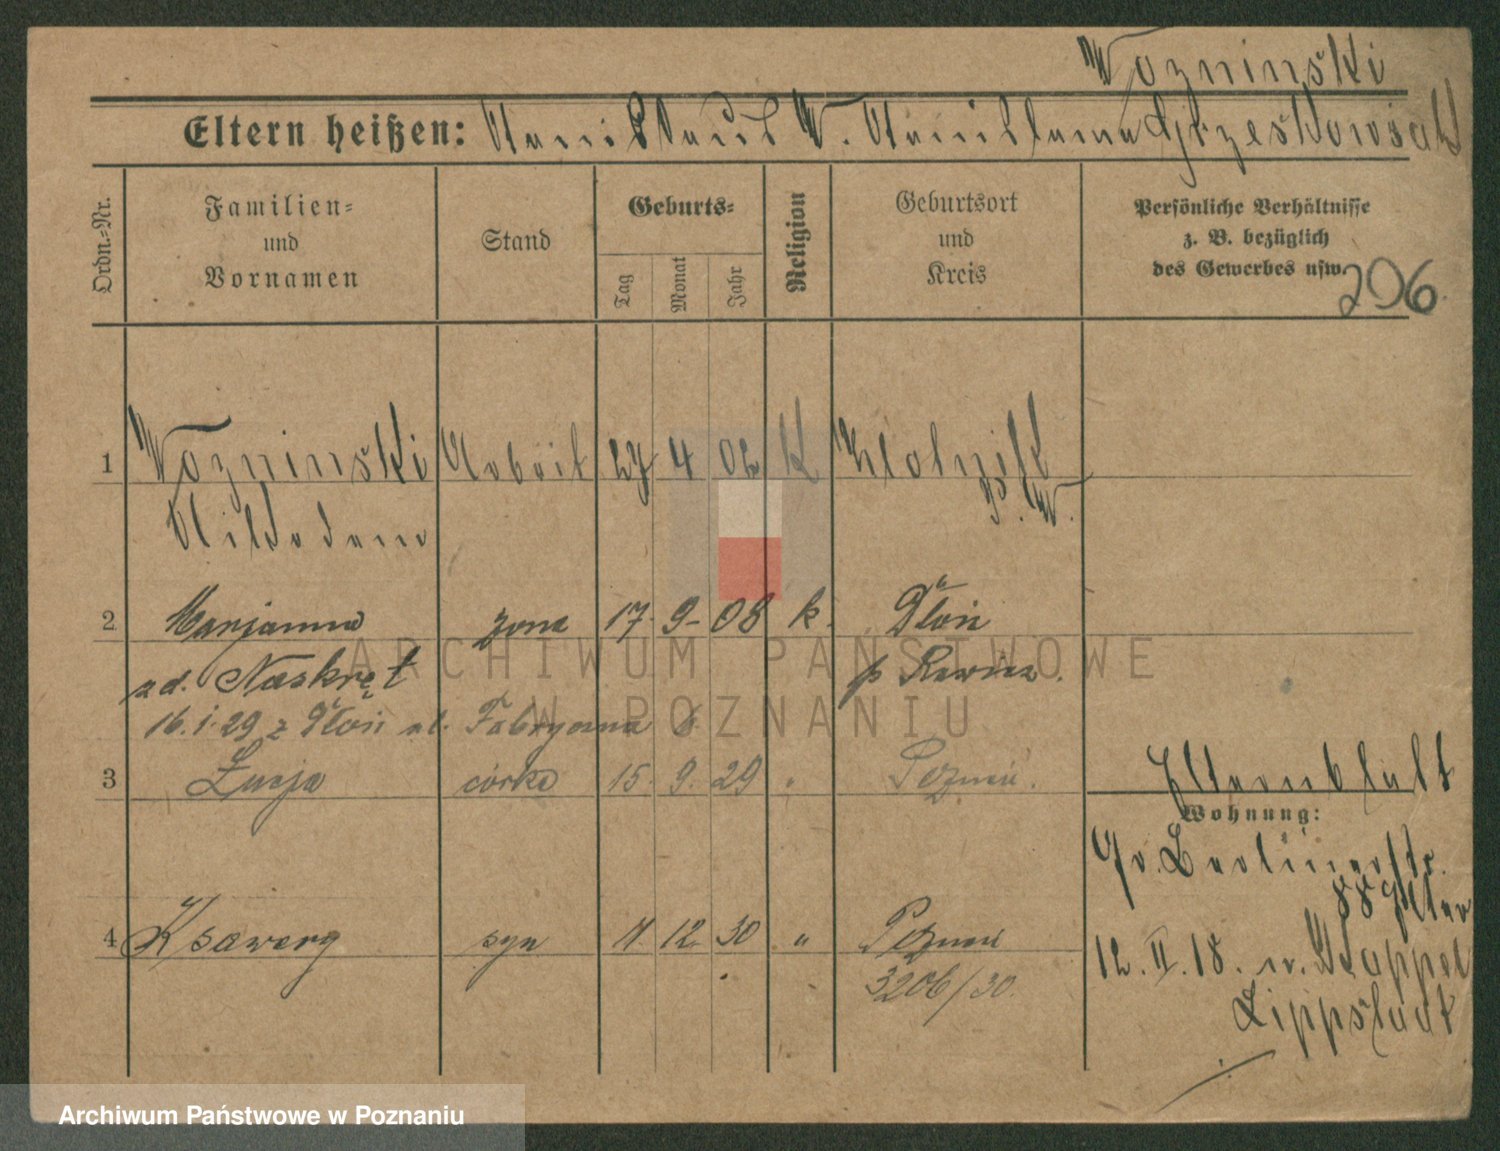 Wozninski
Eltern heißen: Stanislaus W. Stanislawa Grzeskowiak
Ordn.-Nr.
Familien- und Vornamen
Stand
Geburts-
Tag Monat Jahr
Religion
Geburtsort und Kreis
Persönliche Verhältnisse
z. B. bezüglich
des Gewerbes usw.
206.
1 Wozninski Arbeit 27 4 02 K
P. W.
2 Marjanna żona 17. 9. 08 k. Dłoń
zd. Naskręt p Rawicz.
16.1.29 z Dłoń ul. Fabryczna
3 Łucja córka 15. 9. 29 " Poznań.
Elternblatt
Wohnung:
Gr. Berlinerstr.
4 Ksawery syn 11. 12. 30 " Poznań
3206/30.
12. II. 18. n. Kappel
Lippstadt
ARCHIWUM PAŃSTWOWE
W POZNANIU
Archiwum Państwowe w Poznaniu